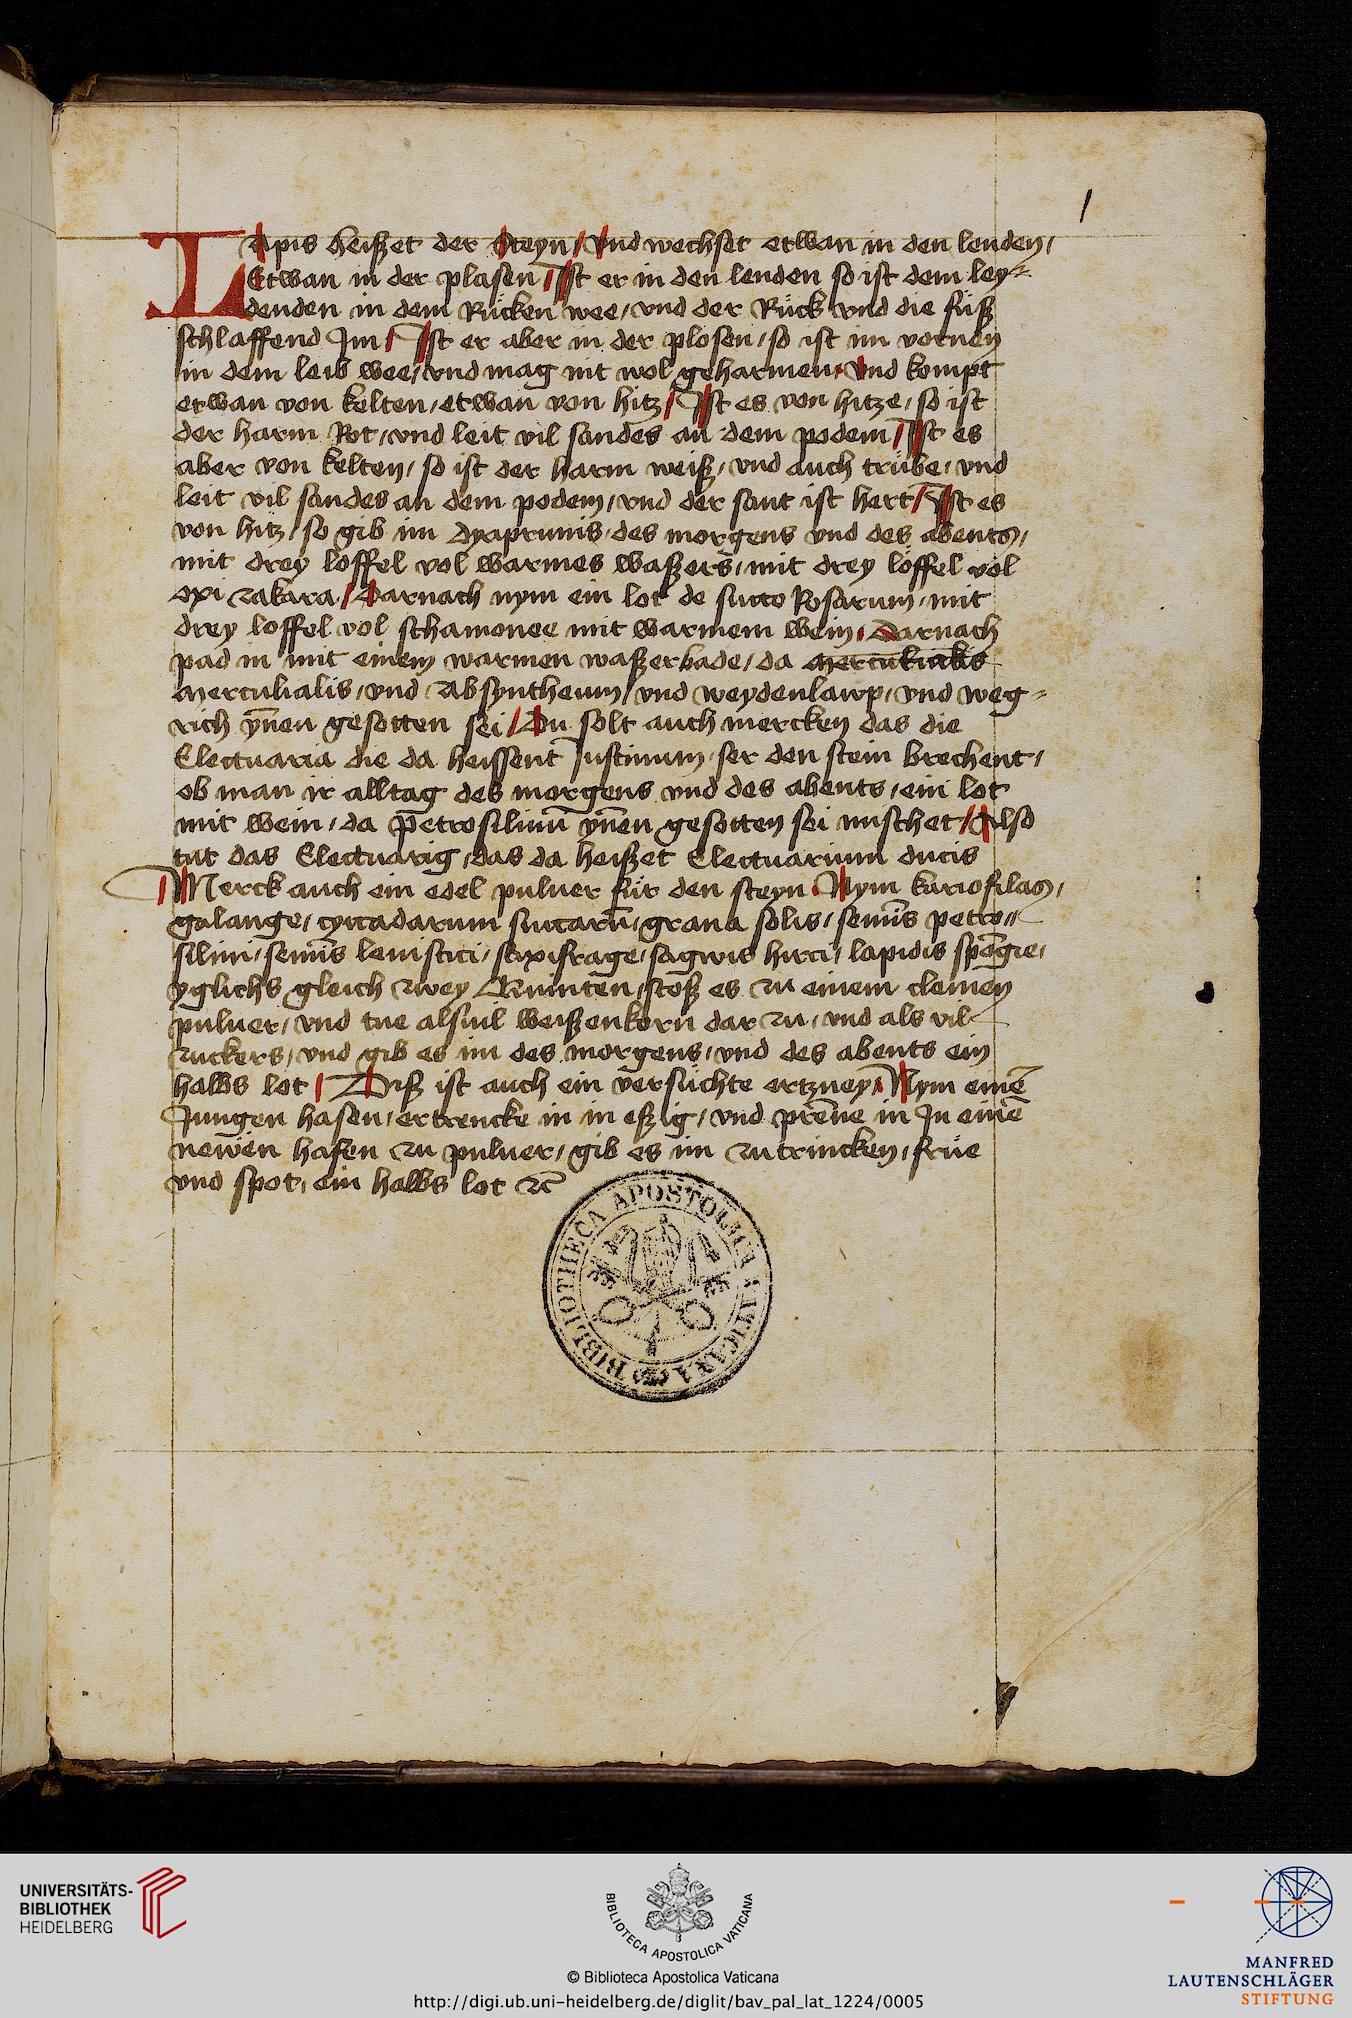 1
Lapis heißet der Steyn / Vnd wechset etwan in den lenden /
Etwan in der plasen / Ist er in den lenden so ist dem ley=
denden in dem Rücken wee / vnd der Rück vnd die füß
schlaffend Im / Ist er aber in der plosen / so ist im vornen
in dem leib wee / vnd mag nit wol geharmen / Vnd kompt
etwan von kelten / etwan von hitz / Ist es von hitze / so ist
der harm Rot / vnd leit vil sandes an dem podem / Ist es
aber von kelten / so ist der harm weiß / vnd auch trübe / vnd
leit vil sandes an dem podem / vnd der sant ist hert / Ist es
von hitz / so gib im dyaprunis / des morgens vnd des abents /
mit drey löffel vol warmes waßers / mit drey löffel vol
oxi zakara / Darnach nym ein lot de succo Rosarum / mit
drey loffel vol schamonee mit warmem wein / Darnach
pad in mit einem warmen waßerbade / da
Merculialis / vnd Absyntheum / vnd weydenlawp / vnd weg=
rich ynnen gesotten sei / Du solt auch mercken das die
Electuaria die da heissent Justinum / ser den stein brechent /
ob man ir alltag des morgens vnd des abents / ein lot
mit wein / da petrosilinū ynnen gesotten sei nuschet / Also
tut das Electuarig / das da heißet Electuarium ducis
Merck auch ein edel puluer für den steyn / Nym kariofilas /
galange / grana solis / semīs petro=
silini / semīs leuistici / saxifrage / sagwis hirci / lapidis spōgie /
yglichs gleich zwey Quinten / stoß es zu einem cleinen
puluer / vnd tue alsuil weißenkorn dar zu / vnd als vil
zuckers / vnd gib es im des morgens / vnd des abents ein
halbs lot / Diß ist auch ein versüchte ertzney / Nym einē
Jungen hasen / ertrencke in in eßig / vnd prēne in In einē
newen hafen zu puluer / gib es im zutrincken / früe
vnd spot / ein halbs lot zc
BIBLIOTHECA APOSTOLICA VATICANA
UNIVERSITÄTS-
BIBLIOTHEK
HEIDELBERG
BIBLIOTECA APOSTOLICA VATICANA
© Biblioteca Apostolica Vaticana
http://digi.ub.uni-heidelberg.de/diglit/bav_pal_lat_1224/0005
MANFRED
LAUTENSCHLÄGER
STIFTUNG